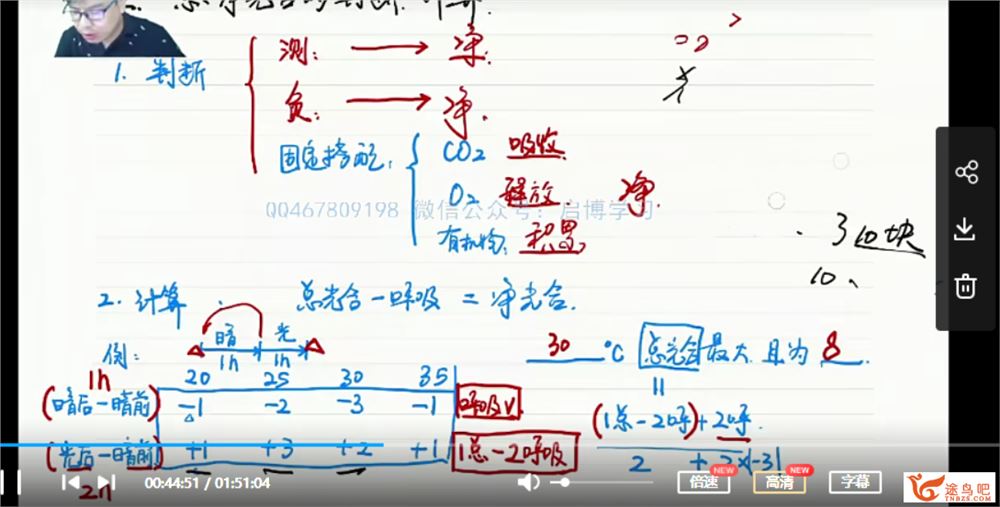 二. 总净光合的判断、计算.
1. 判断
测: → 净.
负: → 净.
固定搭配:
CO2 吸收.
O2 释放 净.
有机物: 积累
QQ467809198 微信公众号: 启博学习
3 10块
10、
2. 计算. 总光合-呼吸 = 净光合.
暗 光
1h 1h
例:
30 °C 总光合 最大 且为 8.
1h 20 25 30 35
(暗后-暗前) -1 -2 -3 -1 呼吸V
(光后-暗前) +1 +3 +2 +1 1总-2呼吸
2h
=
(1总-2呼)+2呼.
2 + 2×|-3|
00:44:51 / 01:51:04
倍速 NEW
高清 NEW
字幕
途鸟吧
TNBZS.COM